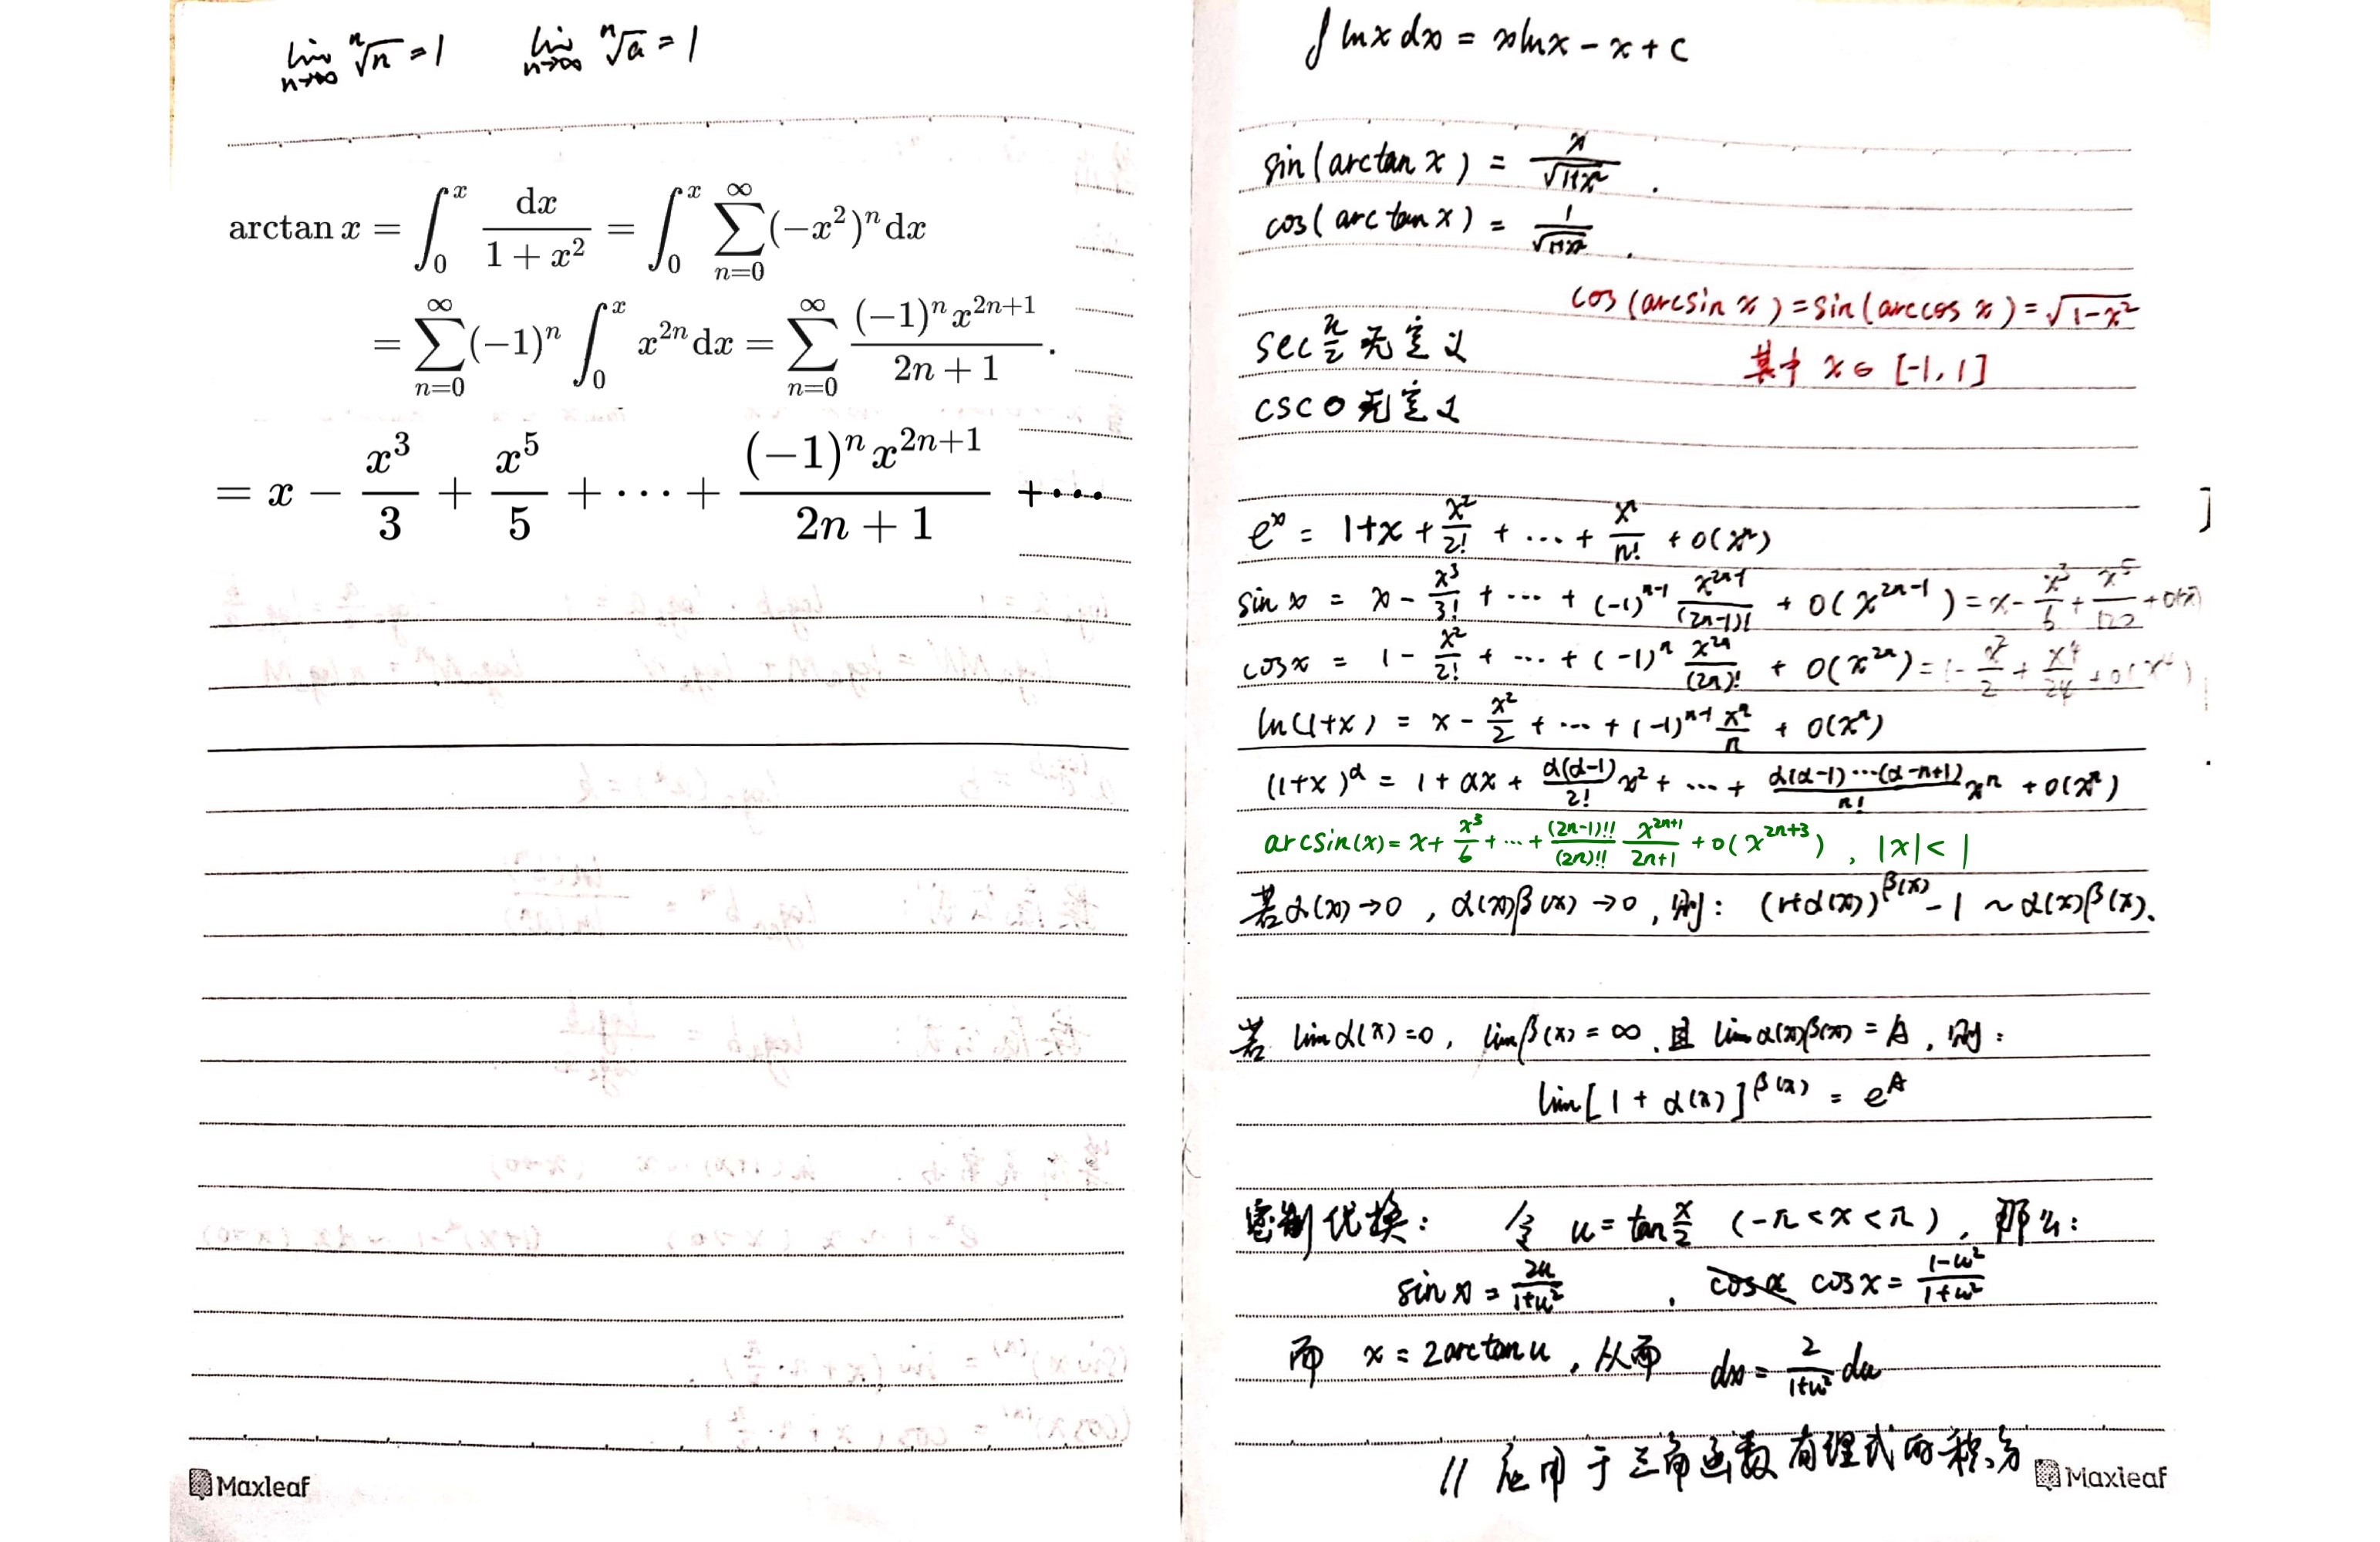 lim n→∞ ⁿ√n = 1   lim n→∞ ⁿ√a = 1
arctan x = ∫₀ˣ dx/(1 + x²) = ∫₀ˣ ∑_{n=0}^{∞} (−x²)ⁿ dx
= ∑_{n=0}^{∞} (−1)ⁿ ∫₀ˣ x²ⁿ dx = ∑_{n=0}^{∞} (−1)ⁿ x²ⁿ⁺¹/(2n + 1).
= x − x³/3 + x⁵/5 + ⋯ + (−1)ⁿ x²ⁿ⁺¹/(2n + 1) + ⋯
Maxleaf
∫ lnx dx = xlnx − x + C
sin(arctan x) = x/√(1+x²) .
cos(arctan x) = 1/√(1+x²) .
cos(arcsin x) = sin(arccos x) = √(1−x²)
sec π/2 无定义
其中 x∈[-1,1]
csc 0 无定义
eˣ = 1+x + x²/2! + ⋯ + xⁿ/n! + o(xⁿ)
sin x = x − x³/3! + ⋯ + (−1)ⁿ⁻¹ x²ⁿ⁻¹/(2n−1)! + o(x²ⁿ⁻¹) = x − x³/6 + x⁵/120 + o(x⁵)
cosx = 1 − x²/2! + ⋯ + (−1)ⁿ x²ⁿ/(2n)! + o(x²ⁿ) = 1 − x²/2 + x⁴/24 + o(x⁴)
ln(1+x) = x − x²/2 + ⋯ + (−1)ⁿ⁻¹ xⁿ/n + o(xⁿ)
(1+x)^α = 1 + αx + α(α−1)/2! x² + ⋯ + α(α−1)⋯(α−n+1)/n! xⁿ + o(xⁿ)
arcsin(x) = x + x³/6 + ⋯ + (2n−1)!!/(2n)!! x²ⁿ⁺¹/(2n+1) + o(x²ⁿ⁺³) , |x|<1
若α(x)→0 , α(x)β(x)→0 , 则: (1+α(x))^β(x) − 1 ~ α(x)β(x).
若 limα(x)=0, limβ(x)=∞, 且 limα(x)β(x)=A, 则:
lim[1 + α(x)]^β(x) = e^A
代换: 令 u = tan x/2 (−π<x<π), 那么:
sin x = 2u/(1+u²) , cosx = (1−u²)/(1+u²)
而 x = 2arctan u, 从而 dx = 2/(1+u²) du
// 应用于三角函数有理式的积分
Maxleaf